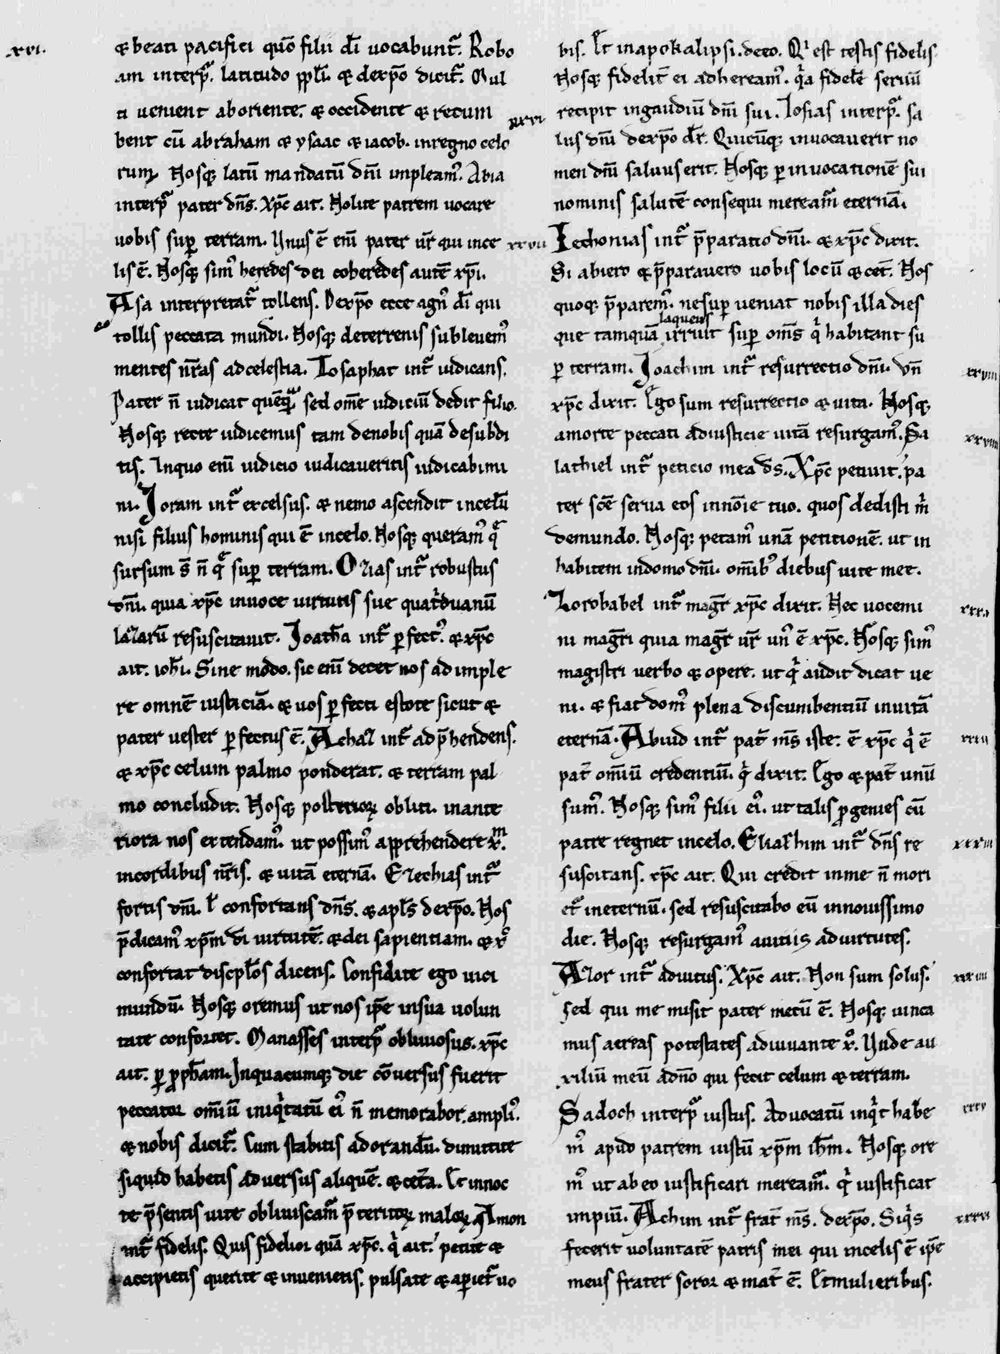 xvi.
& beati pacifici quō filii dī vocabunt᷑. Robo
am interp̄᷑. latitudo pp̄li. & de xp̄o dicit᷑. Mul
ti venient ab oriente. & occidente & recum
bent cū abraham & ysaac & iacob. in regno celo
rum. Nosq; latū mandatū dn̄i impleam᷒. Abia
interp̄᷑ pater dn̄s. Xp̄c ait. Nolite patrem vocare
vobis sup̄ terram. Unus ē eni᷑ pater ur̄ qui in ce
lis ē. Nosq; sim᷒ heredes dei coheredes autē xp̄i.
Asa interpretat᷑ tollens. De xp̄o ecce agn᷒ dī qui
tollis peccata mundi. Nosq; de terrenis sublevem᷒
mentes nr̄as ad celestia. Iosaphat int᷑ iudicans.
Pater n̄ iudicat quēq᷑ sed om̄e iudiciū dedit filio.
Nosq; recte iudicemus tam de nobis quā de subdi
tis. In quo enī iudicio iudicaveritis iudicabimi
ni. Joram int᷑ excelsus. & nemo ascendit in celū
nisi filius hominis qui ē in celo. Nosq; queram᷒ q̄
sursum s̄ n̄ q̄ sup̄ terram. Ozias int᷑ robustus
dn̄i. quia xp̄c in voce virtutis sue quat᷑duanū
lazarū resuscitavit. Joathā int᷑ p̄fect᷒. & xp̄c
ait. ioh̄i. Sine modo. sic enī decet nos adimple
re omnē iusticiā. & vos p̄fecti estote sicut &
pater vester p̄fectus ē. Achaz int᷑ adp̄hendens.
& xp̄c celum palmo ponderat. & terram pal
mo concludit. Nosq; posteriorꝝ obliti. in ante
riora nos extendam᷒. ut possim᷒ apprehendere x̄m.
in cordibus nr̄is. & vitā eternā. Ezechias int᷑
fortis dn̄i. ł confortans dn̄s. & apl̄s de xp̄o. Nos
p̄dicam᷒ xp̄m dī virtutē. & dei sapientiam. & x᷒
confortat discipl̄os dicens. Confidite ego vici
mundū. Nosq; oremus ut nos ip̄e in sua volun
tate confortet. Manasses interp̄᷑ obliviosus. xp̄c
ait. p̄ pp̄ham. In quacumq; die cōversus fuerit
peccator omīū iniq̄tatū ei᷒ n̄ memorabor ampli᷒.
& nobis dicit᷑. Cum stabitis ad orandū. dimittite
si quid habetis adversus aliquē. & cet̄a. Et in noc
te p̄sentis vite obliviscam᷑ p̄teritoꝝ maloꝝ. Amon
int᷑ fidelis. Quis fidelior quā xp̄c. q̄ ait. petite &
accipietis querite & invenietis. pulsate & apiet᷑ vo
bis. Et in apokalipsi. de eo. Qⁱ est testis fidelis.
Nosq; fidelit᷑ ei adheream᷒. q̄a fidelē servū
xxvi
recipit in gaudiū dn̄i sui. Iosias interp̄᷑. sa
lus dn̄i de xp̄o dr̄. Quicūq; invocaverit no
men dn̄i salvus erit. Nosq; p̄ invocationē sui
nominis salutē consequi meream᷑ eternā.
xxvii
Iechonias int᷑ p̄paratio dn̄i. & xp̄c dixit.
Si abiero & p̄paravero vobis locū & cet᷑. Nos
quoq; p̄parem᷒. ne sup̄veniat nobis illa dies
laqueus
que tamquā irruit sup̄ om̄s q̄ habitant su
xxviii
p̄ terram. Joachim int᷑ resurrectio dn̄i. Un̄
xp̄c dixit. Ego sum resurrectio & vita. Nosq;
xxviiii
a morte peccati ad iusticie vitā resurgam᷒. Sa
lathiel int᷑ peticio mea ds̄. Xp̄c petivit. pa
ter scē serva eos in noīe tuo. quos dedisti m̄
de mundo. Nosq; petam᷒ unā petitionē. ut in
habitem in domo dn̄i. omīb᷒ diebus vite mee.
xxx.
Zorobabel int᷑ magr̄ xp̄c dixit. Nec vocemi
ni magr̄i quia magr̄ ur̄ un᷒ ē xp̄c. Nosq; sim᷒
magistri verbo & opere. ut q̄ audit dicat ve
ni. & fiat dom᷒ plena discumbentiū in vitā
xxxi
eternā. Abiud int᷑ pat᷑ m̄s iste. ē xp̄c q̄ ē
pat᷑ omīū credentiū. q̄ dixit. Ego & pat᷑ unū
sum᷒. Nosq; sim᷒ filii ei᷒. ut talis progenies cū
xxxii
patre regnet in celo. Eliachim int᷑ dn̄s re
suscitans. xp̄c ait. Qui credit in me n̄ mori
et᷑ in eternū. sed resuscitabo eū in novissimo
die. Nosq; resurgam᷒ a vitiis ad virtutes.
xxxiiii
Azor int᷑ adiutus. Xp̄c ait. Non sum solus.
sed qui me misit pater mecū ē. Nosq; vinca
mus aereas potestates adiuvante x᷒. Unde au
xiliū meū a dn̄o qui fecit celum & terram.
xxxv
Sadoch interp̄᷑ iustus. Advocatū inq̄t habe
m᷒ apud patrem iustū xp̄m ih̄m. Nosq; ore
m᷒ ut ab eo iustificari meream᷑. q̄ iustificat
xxxvi
impiū. Achim int᷑ frat᷑ m̄s. de xp̄o. Siq̄s
fecerit voluntatē patris mei qui in celis ē ip̄e
meus frater soror & mat᷑ ē. Et mulieribus.